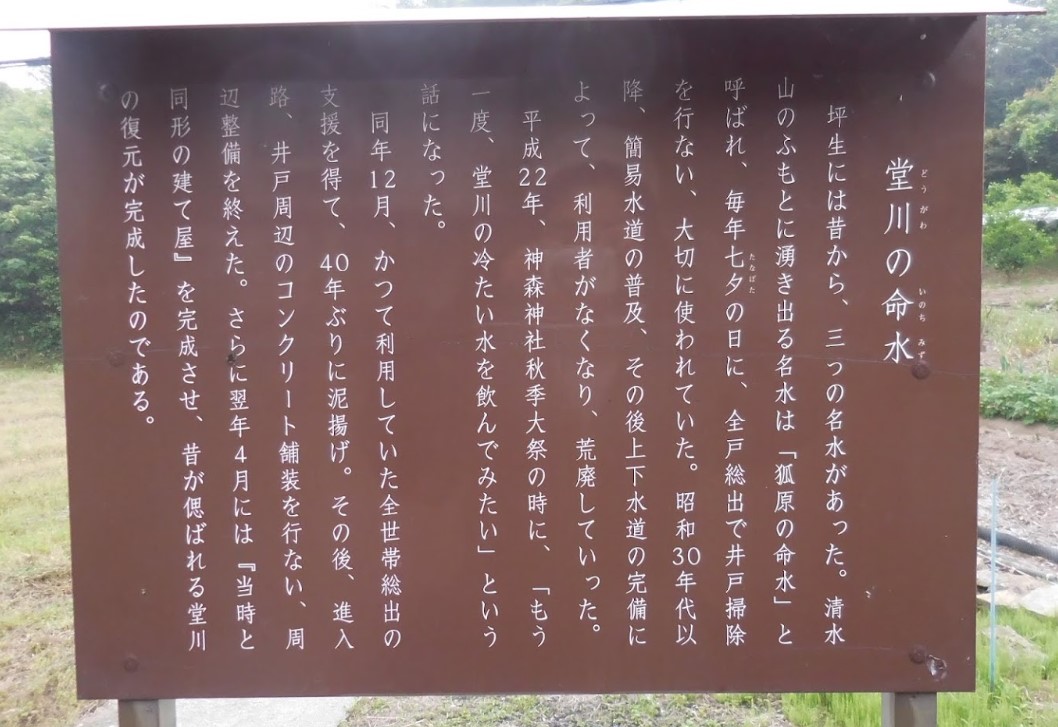 堂川の命水
どうがわ いのち みず
坪生には昔から、三つの名水があった。清水
山のふもとに湧き出る名水は「狐原の命水」と
呼ばれ、毎年七夕の日に、全戸総出で井戸掃除
たなばた
を行ない、大切に使われていた。昭和30年代以
降、簡易水道の普及、その後上下水道の完備に
よって、利用者がなくなり、荒廃していった。
平成22年、神森神社秋季大祭の時に、「もう
一度、堂川の冷たい水を飲んでみたい」という
話になった。
同年12月、かつて利用していた全世帯総出の
支援を得て、40年ぶりに泥揚げ。その後、進入
路、井戸周辺のコンクリート舗装を行ない、周
辺整備を終えた。さらに翌年4月には『当時と
同形の建て屋』を完成させ、昔が偲ばれる堂川
の復元が完成したのである。